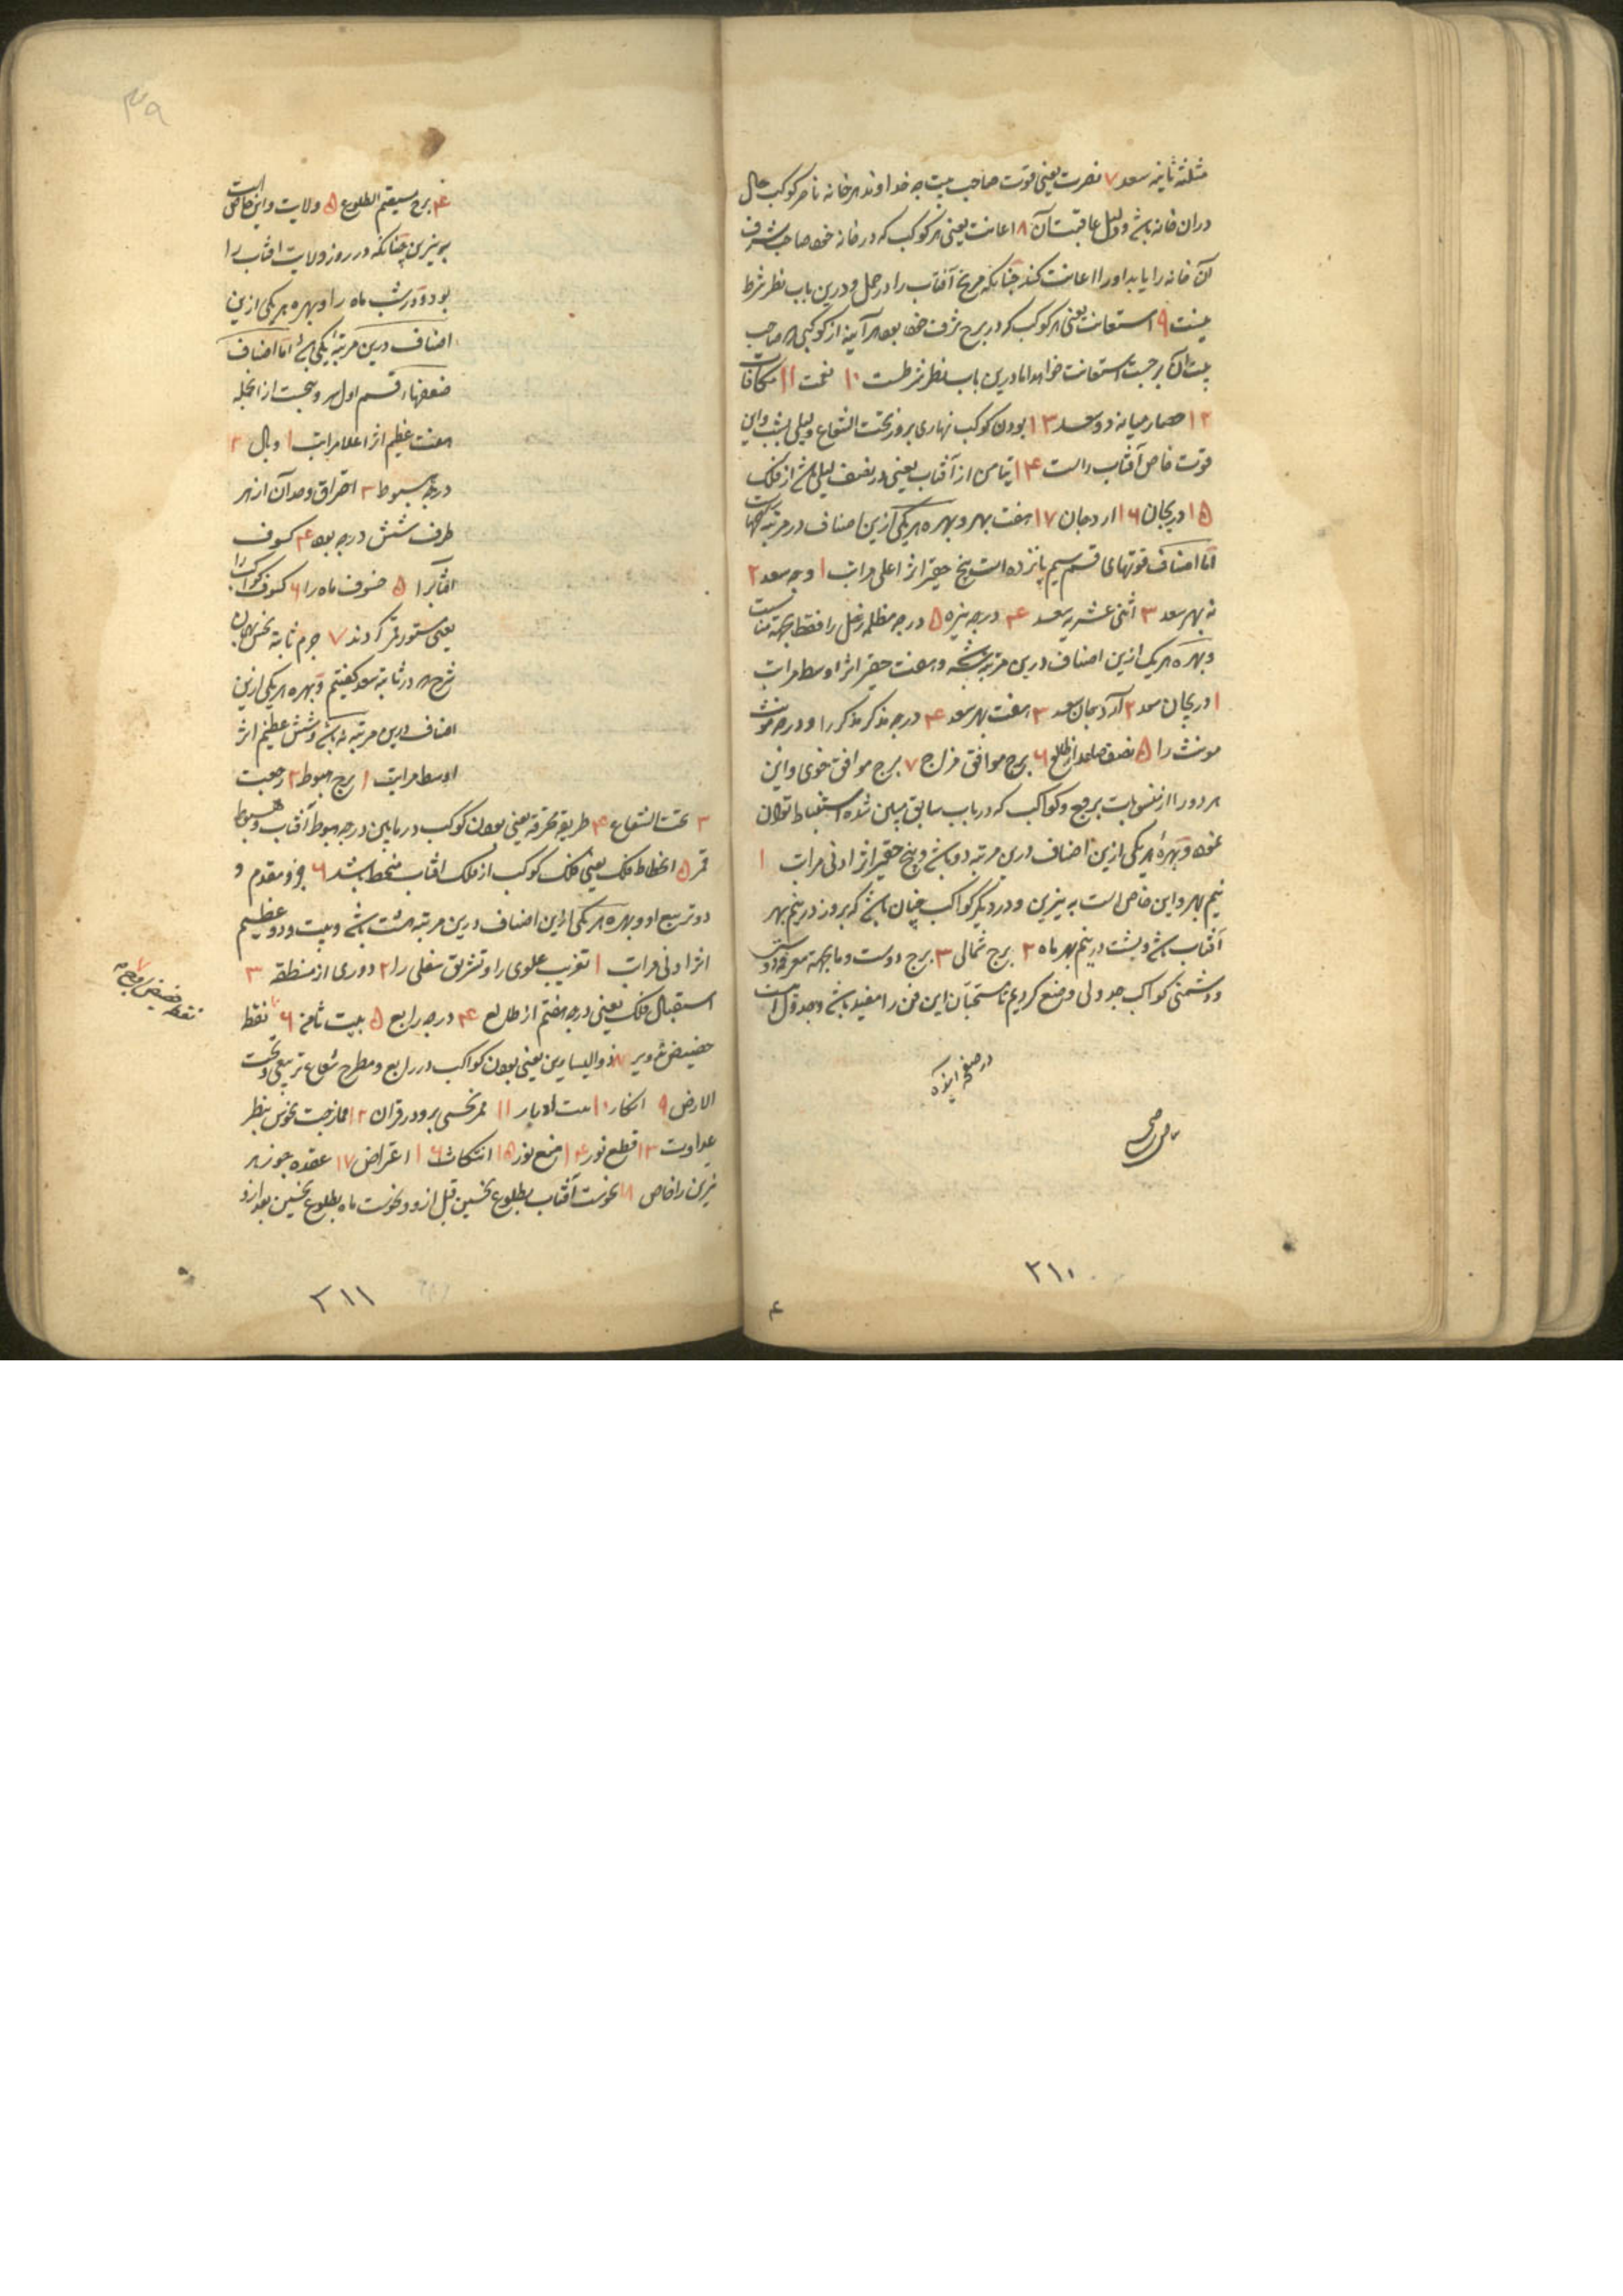 مثلثه ثانیه سعد ۷ نصرت یعنی قوت صاحب بیت چه خداوند هر خانه ناصر کوکب حال
دران خانه باشد و دلیل عاقبت آن ۸ اعانت یعنی هر کوکب که در خانه خود صاحب شرف
آن خانه را یابد او را اعانت کند چنانکه مریخ آفتاب را در حمل و درین باب نظر شرط
نیست ۹ استعانت یعنی هر کوکب که در برج شرف خود بود هر آینه از کوکبی که صاحب
بیت آن برجست استعانت خواهد اما درین باب نظر شرطست ۱۰ نعمت ۱۱ مکافات
۱۲ حصار میانه دو سعد ۱۳ بودن کوکب نهاری بروز تحت الشعاع و لیلی بشب و این
قوت خاص آفتاب راست ۱۴ تیامن از آفتاب یعنی در نصف لیلی باشد از فلک
۱۵ دریجان ۱۶ اردجان ۱۷ هفت بهر و بهره هر یکی ازین اصناف در مرتبه
اما اصناف قوتهای قسم سیم پانزده است پنج حقیر اثر اعلی مراتب ۱ وجه سعد ۲
نه بهر سعد ۳ اثنی عشریه سعد ۴ درجه نیره ۵ درجه مظلمه زحل را فقط بجهة مناسبت
و بهره هر یک ازین اصناف درین مرتبه و هفت حقیر اثر اوسط مراتب
۱ دریجان سعد ۲ آدرجان سعد ۳ هفت بهر سعد ۴ درجه مذکر مذکر را و درجه مونث
مونث را ۵ نصف صاعد از طالع ۶ برج موافق مزاج ۷ برج موافق خوی و این
هر دو را از منسوبات بروج و کواکب که در باب سابق مبین شده استنباط توان
نمود و بهره هر یکی ازین اصناف درین مرتبه دو باشد و پنج حقیر اثر ادنی مراتب ۱
نیم بهر و این خاص است به نیرین و در دیگر کواکب چنان باشد که بروز در نیم بهر
آفتاب باشد و بشب در نیم بهر ماه ۲ برج شمالی ۳ برج دوست و ما بجهة معرفة دوستی
و دشمنی کواکب جدولی وضع کردیم تا مستحبان این فن را مفید باشد و جدول اینست
در صفحه آینده
۲۱۰
۴
۴ برج مستقیم الطلوع ۵ ولایت و این خاص است
بنیرین چنانکه در روز ولایت آفتاب را
بود و در شب ماه را و بهره هر یکی ازین
اصناف درین مرتبه یکی باشد اما اصناف
ضعفها قسم اول از انجمله
هفت عظیم اثر اعلا مراتب ۱ وبال ۲
درجه هبوط ۳ احتراق و حد آن از هر
طرف شش درجه بود ۴ کسوف
آفتاب را ۵ خسوف ماه را ۶ کسوف کواکب را
یعنی مستور قمر گردند ۷ جرم ثابته نحس
شرح در ثابته سعد گفتیم و بهره هر یکی ازین
اصناف درین مرتبه نه باشد و شش عظیم اثر
اوسط مراتب ۱ برج هبوط ۲ رجعت
۳ تحت الشعاع ۴ طریقه محترقه یعنی بودن کوکب در مابین درجه هبوط آفتاب و هبوط
قمر ۵ انحطاط فلک یعنی فلک کوکب از فلک آفتاب منحط باشد ۶ مقدم و
دو تربیع او و بهره هر یکی ازین اصناف درین مرتبه هشت باشد و بیست و دو عظیم
اثر ادنی مراتب ۱ تغریب علوی را و تشریق سفلی را ۲ دوری از منطقه ۳
استقبال فلک یعنی درجه هفتم از طالع ۴ درجه رابع ۵ بیت ثامن ۶ نقطه
حضیض تدویر ۸ ذوالیسارین یعنی بودن کواکب در رابع و مطرح شعاع تربیعی تحت
الارض ۹ انکار ۱۰ بیت ادبار ۱۱ ممر نحسی بر و در قران ۱۲ ممازجت نحوس بنظر
عداوت ۱۳ قطع نور ۱۴ منع نور ۱۵ انتکاث ۱۶ اعتراض ۱۷ عقده جوزهر
نیرین را خاص ۱۸ نحوست آفتاب بطلوع نحسین قبل ازو و نحوست ماه بطلوع نحسین بعد ازو
۷
نقطه حضیض
۲۱۱